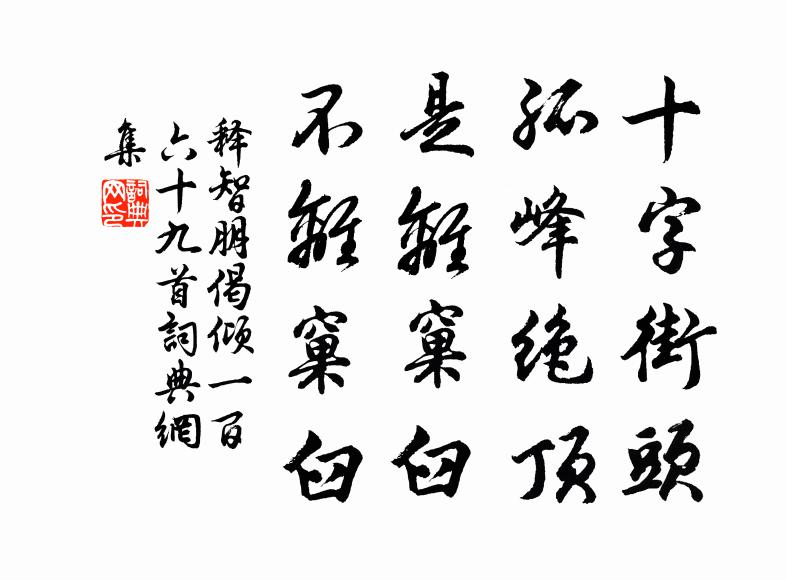 十字街頭
孤峰绝顶
是離窠臼
不離窠臼
释智朋偈倾一百
六十九首詞典網
集
詞典
网印